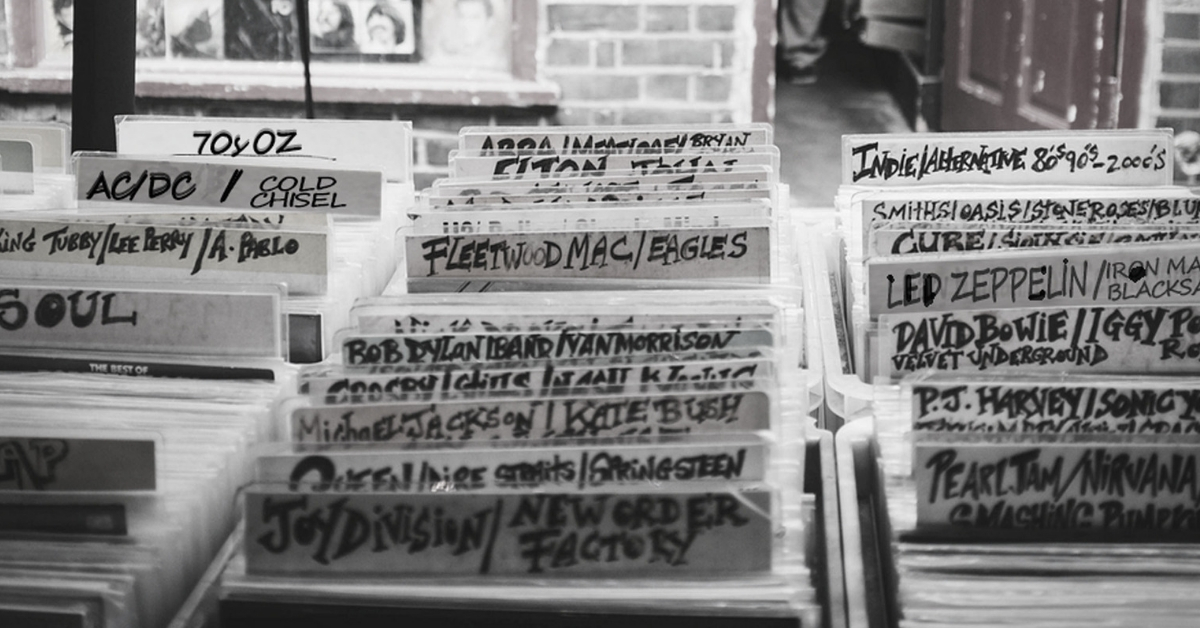 70s OZ
AC/DC / COLD
CHISEL
KING TUBBY/LEE PERRY/A. PABLO
SOUL
THE BEST OF
ABBA/ BRYAN
ELTON
FLEETWOOD MAC/EAGLES
BOB DYLAN/BAND/VAN MORRISON
CROSBY/
MichaEL JACKSON/KATE BUSH
QUEEN/DIRE STRAITS/SPRINGSTEEN
JOY DIVISION/NEW ORDER
FACTORY
INDIE/ALTERNATIVE 80'S 90'S-2000'S
SMITHS/OASIS/STONE ROSES/BLU
CURE/
LED ZEPPELIN/IRON MA
BLACKSA
DAVID BOWIE/IGGY PO
VELVET UNDERGROUND
P.J. HARVEY/SONIC Y
PEARL JAM/NIRVANA
SMASHING PUMPK